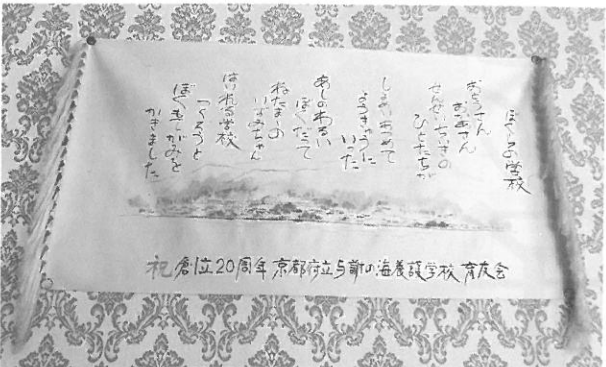 ぼくらの学校
おとうさん
おかあさん
せんせいちいきの
ひとたちが
しょめいあつめて
いった
あしのわるい
ぼくだって
ねたきりの
いずみちゃん
はいれる学校
つくろうと
ぼくもてがみを
かきました
祝創立20周年 京都府立与謝の海養護学校 育友会